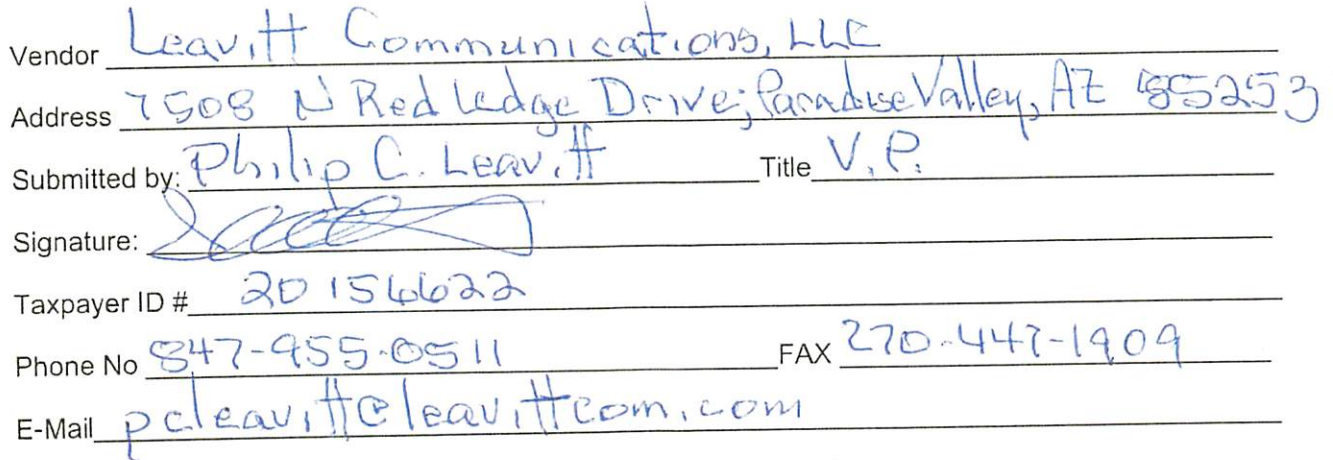 Vendor Leavitt Communications, LLC
Address 7508 N Red Ledge Drive; Paradise Valley, AZ 85253
Submitted by: Philip C. Leavitt Title V.P.
Signature:
Taxpayer ID # 20156622
Phone No 847-955-0511 FAX 270-447-1909
E-Mail pcleavitt@leavittcom.com